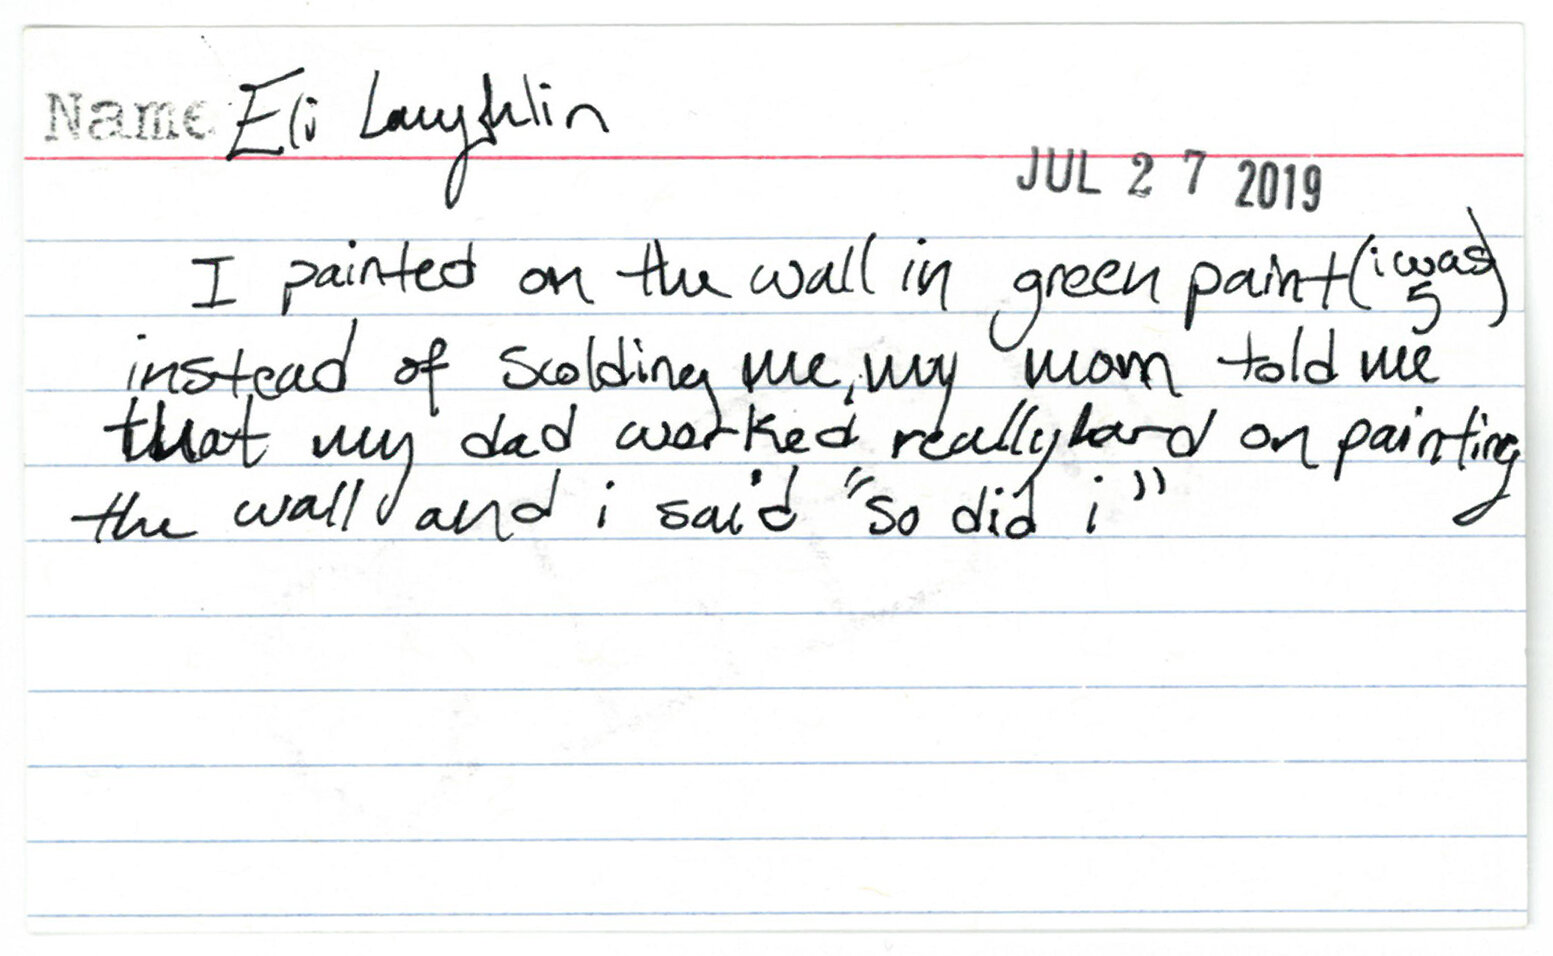 Name Eli Laughlin
JUL 27 2019
I painted on the wall in green paint (i was 5)
instead of scolding me, my mom told me
that my dad worked really hard on painting
the wall and i said "so did i"